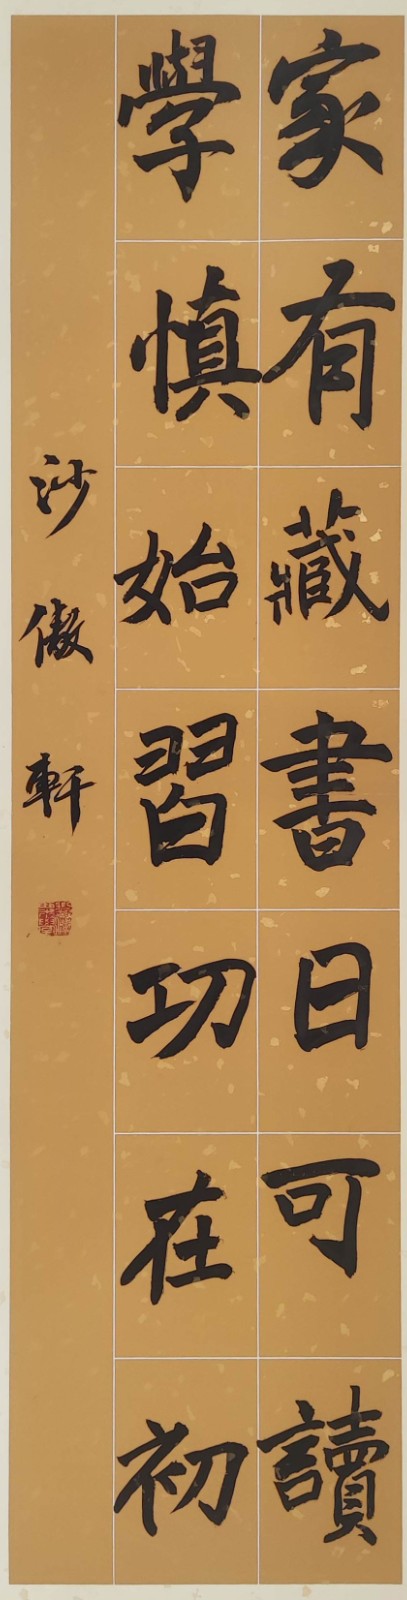 家有藏書日可讀
學慎始習功在初
沙傲軒